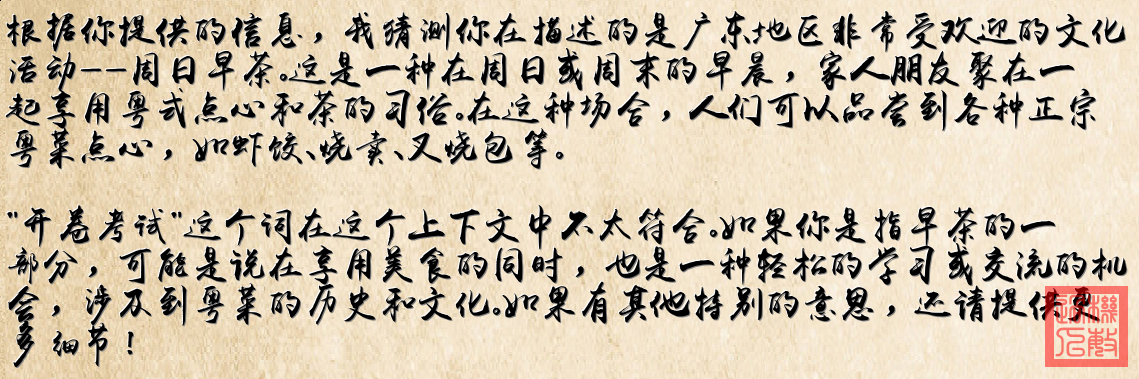 根据你提供的信息，我猜测你在描述的是广东地区非常受欢迎的文化
活动--周日早茶。这是一种在周日或周末的早晨，家人朋友聚在一
起享用粤式点心和茶的习俗。在这种场合，人们可以品尝到各种正宗
粤菜点心，如虾饺、烧卖、叉烧包等。
"开卷考试"这个词在这个上下文中不太符合。如果你是指早茶的一
部分，可能是说在享用美食的同时，也是一种轻松的学习或交流的机
会，涉及到粤菜的历史和文化。如果有其他特别的意思，还请提供更
多细节！